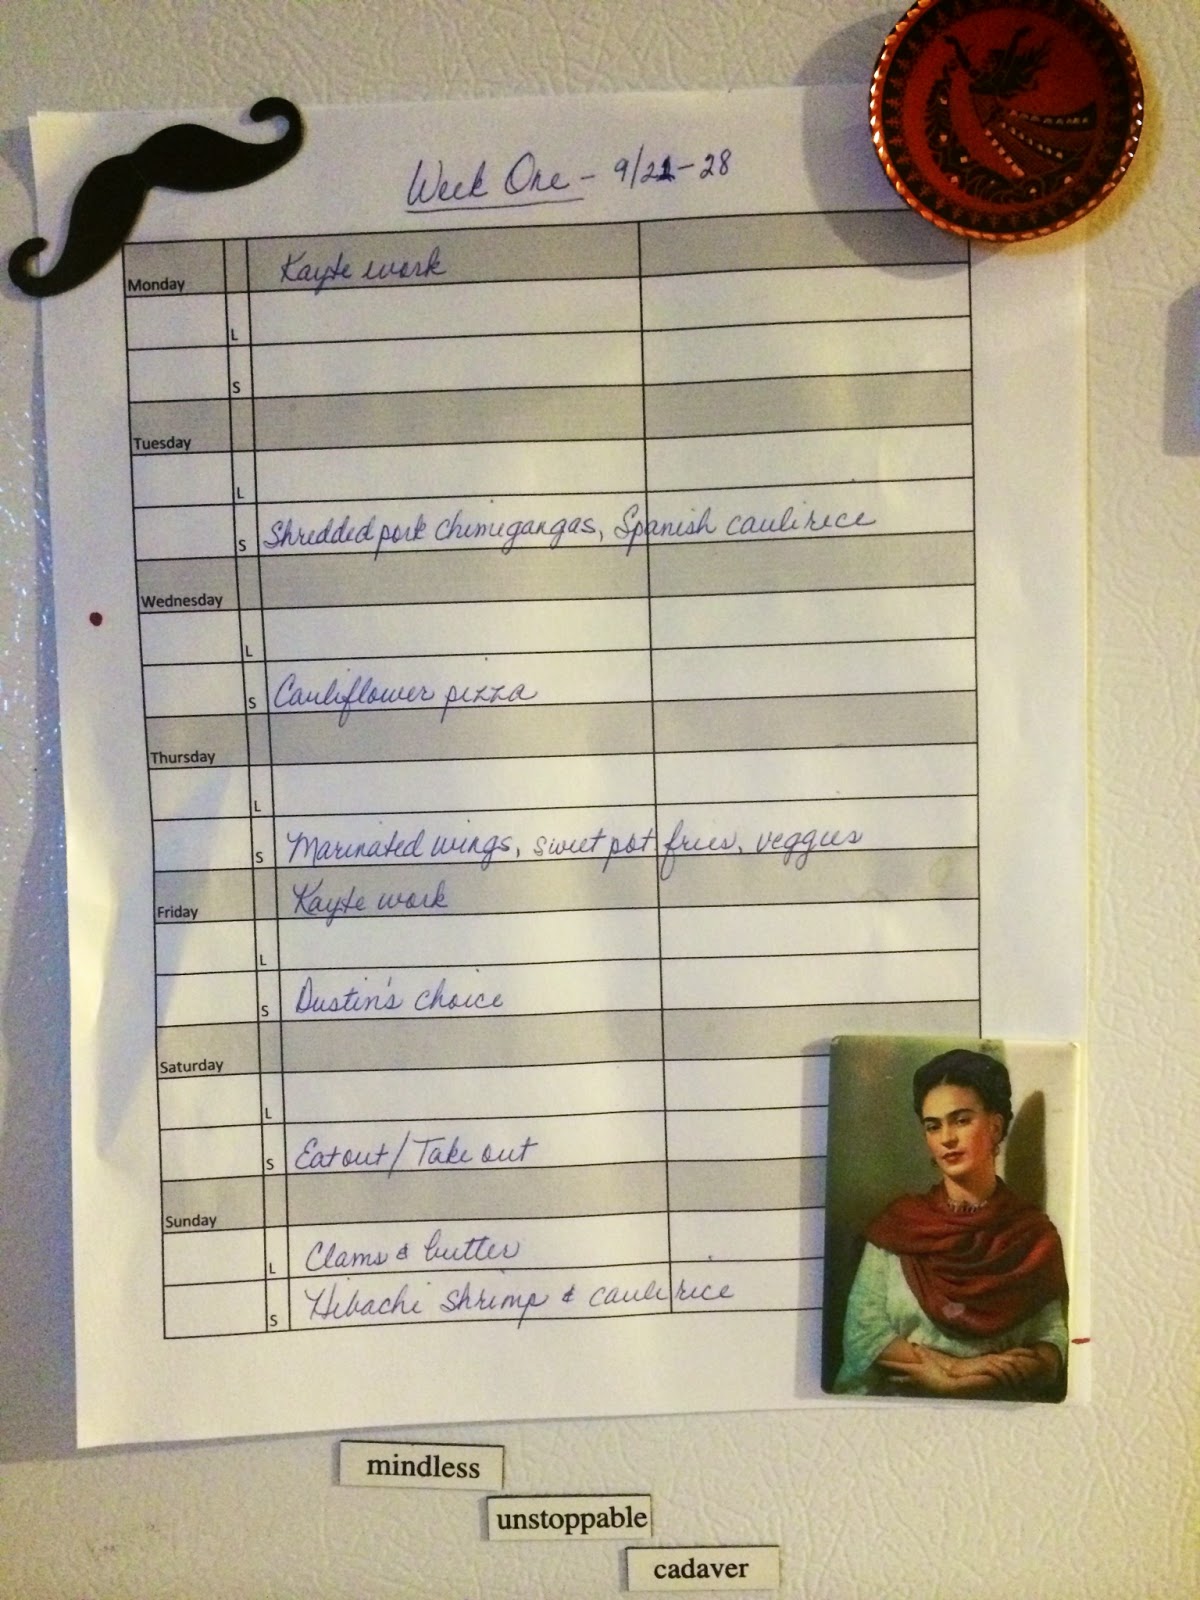 Week One - 9/21-28
Monday Kayte work
L
S
Tuesday
L
S Shredded pork chimigangas, Spanish caulirice
Wednesday
L
S Cauliflower pizza
Thursday
L
S Marinated wings, sweet pot fries, veggies
Friday Kayte work
L
S Dustin's choice
Saturday
L
S Eat out/Take out
Sunday
L Clams & butter
S Hibachi shrimp & caulirice
mindless
unstoppable
cadaver